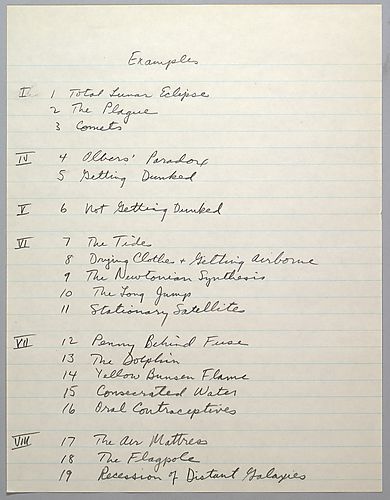 Examples
I 1 Total Lunar Eclipse
2 The Plague
3 Comets
IV 4 Olbers' Paradox
5 Getting Dunked
V 6 Not Getting Dunked
VI 7 The Tides
8 Drying Clothes + Getting Airborne
9 The Newtonian Synthesis
10 The Long Jump
11 Stationary Satellites
VII 12 Penny Behind Fuse
13 The Dolphin
14 Yellow Bunsen Flame
15 Consecrated Water
16 Oral Contraceptives
VIII 17 The Air Mattress
18 The Flagpole
19 Recession of Distant Galaxies